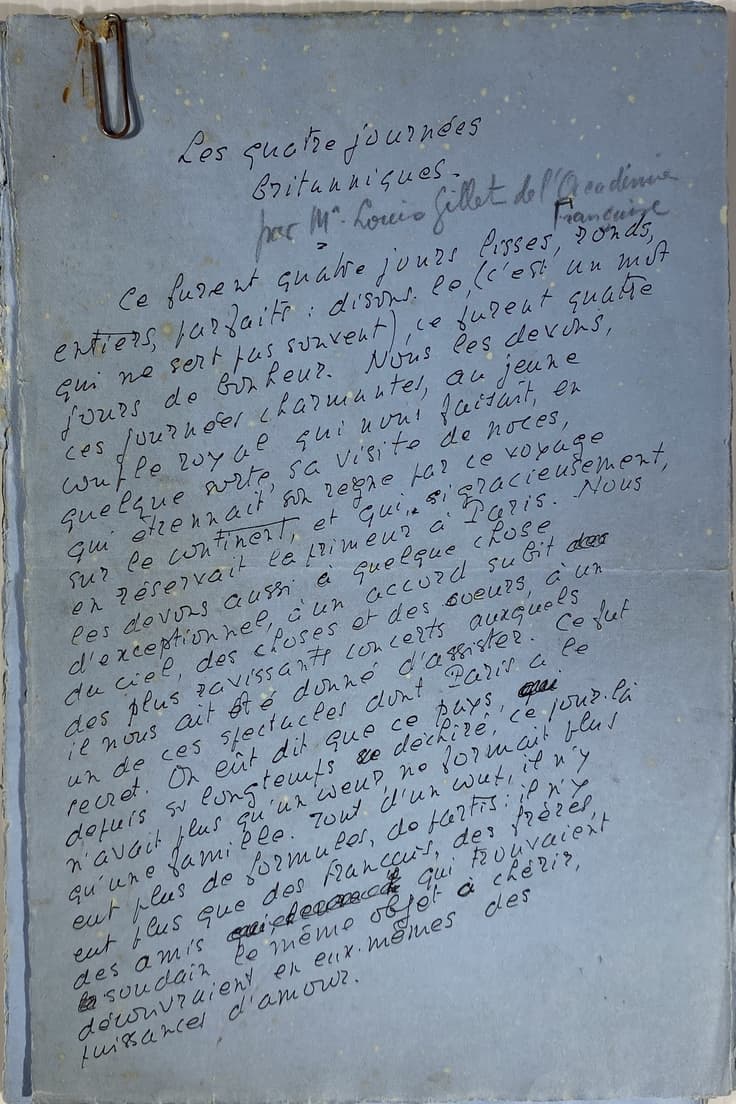 Les quatre journées
Britanniques.
par Mr. Louis Gillet de l'Académie
Française
Ce furent quatre jours lisses, ronds,
entiers, parfaits : disons-le, (c'est un mot
qui ne sert pas souvent), ce furent quatre
jours de bonheur. Nous les devons,
ces journées charmantes, au jeune
couple royal qui nous faisait, en
quelque sorte, sa visite de noces,
qui étrennait son règne par ce voyage
sur le continent, et qui, si gracieusement,
en réservait la primeur à Paris. Nous
les devons aussi à quelque chose
d'exceptionnel, à un accord subit des
du ciel, des choses et des coeurs, à un
des plus ravissants concerts auxquels
il nous ait été donné d'assister. Ce fut
un de ces spectacles dont Paris a le
secret. On eût dit que ce pays, qui
depuis si longtemps se déchiré, ce jour-là
n'avait plus qu'un coeur, ne formait plus
qu'une famille. Tout d'un coup, il n'y
eut plus de formules, de partis : il n'y
eut plus que des Français, des frères,
des amis qui trouvaient
soudain le même objet à chérir,
découvraient en eux-mêmes des
puissances d'amour.